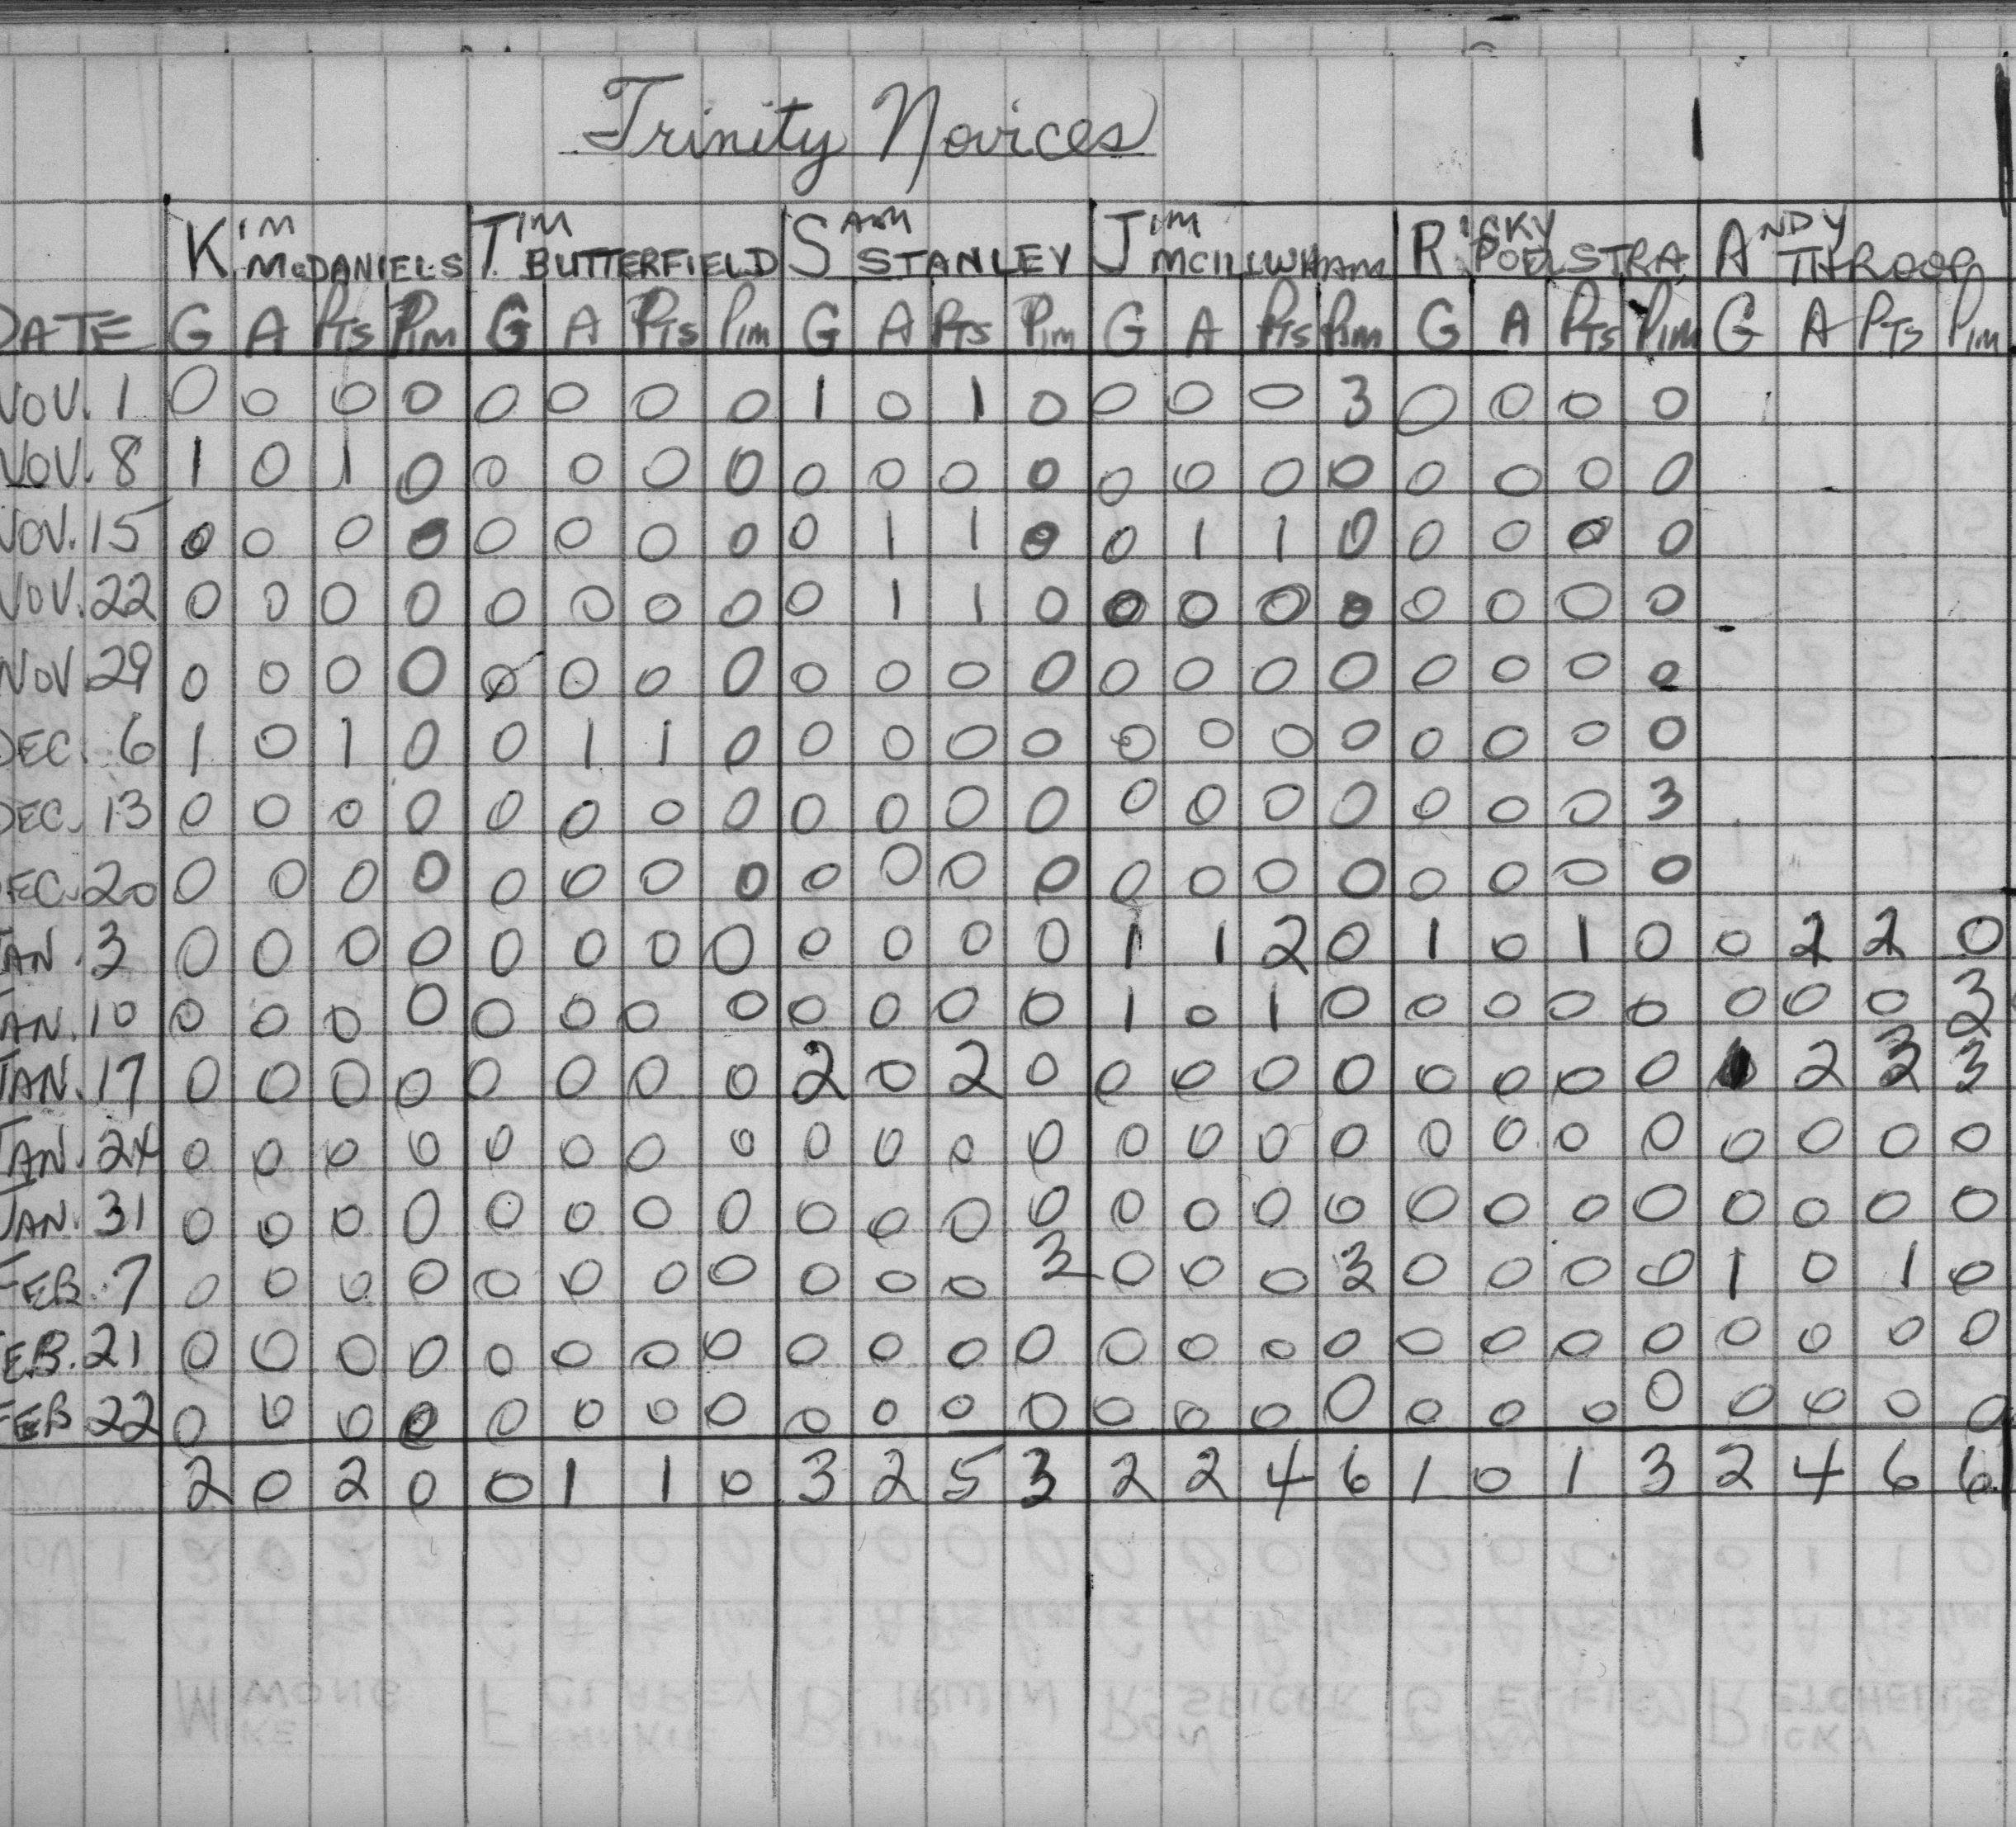 Trinity Novices
KIM McDANIELS TIM BUTTERFIELD SAM STANLEY JIM MCILLWHAM RICKY POELSTRA ANDY THROOP
DATE G A PTS PIM G A PTS PIM G A PTS PIM G A PTS PIM G A PTS PIM G A PTS PIM
NOV. 1 0 0 0 0 0 0 0 0 1 0 1 0 0 0 0 3 0 0 0 0
NOV. 8 1 0 1 0 0 0 0 0 0 0 0 0 0 0 0 0 0 0 0 0
NOV. 15 0 0 0 0 0 0 0 0 0 1 1 0 0 1 1 0 0 0 0 0
NOV. 22 0 0 0 0 0 0 0 0 0 1 1 0 0 0 0 0 0 0 0 0
NOV. 29 0 0 0 0 0 0 0 0 0 0 0 0 0 0 0 0 0 0 0 0
DEC. 6 1 0 1 0 0 1 1 0 0 0 0 0 0 0 0 0 0 0 0 0
DEC. 13 0 0 0 0 0 0 0 0 0 0 0 0 0 0 0 0 0 0 0 3
DEC. 20 0 0 0 0 0 0 0 0 0 0 0 0 0 0 0 0 0 0 0 0
JAN. 3 0 0 0 0 0 0 0 0 0 0 0 0 1 1 2 0 1 0 1 0 0 2 2 0
JAN. 10 0 0 0 0 0 0 0 0 0 0 0 0 1 0 1 0 0 0 0 0 0 0 0 3
JAN. 17 0 0 0 0 0 0 0 0 2 0 2 0 0 0 0 0 0 0 0 0 1 2 3 3
JAN. 24 0 0 0 0 0 0 0 0 0 0 0 0 0 0 0 0 0 0 0 0 0 0 0 0
JAN. 31 0 0 0 0 0 0 0 0 0 0 0 0 0 0 0 0 0 0 0 0 0 0 0 0
FEB. 7 0 0 0 0 0 0 0 0 0 0 0 3 0 0 0 3 0 0 0 0 1 0 1 0
FEB. 21 0 0 0 0 0 0 0 0 0 0 0 0 0 0 0 0 0 0 0 0 0 0 0 0
FEB 22 0 0 0 0 0 0 0 0 0 0 0 0 0 0 0 0 0 0 0 0 0 0 0 0
2 0 2 0 0 1 1 0 3 2 5 3 2 2 4 6 1 0 1 3 2 4 6 6